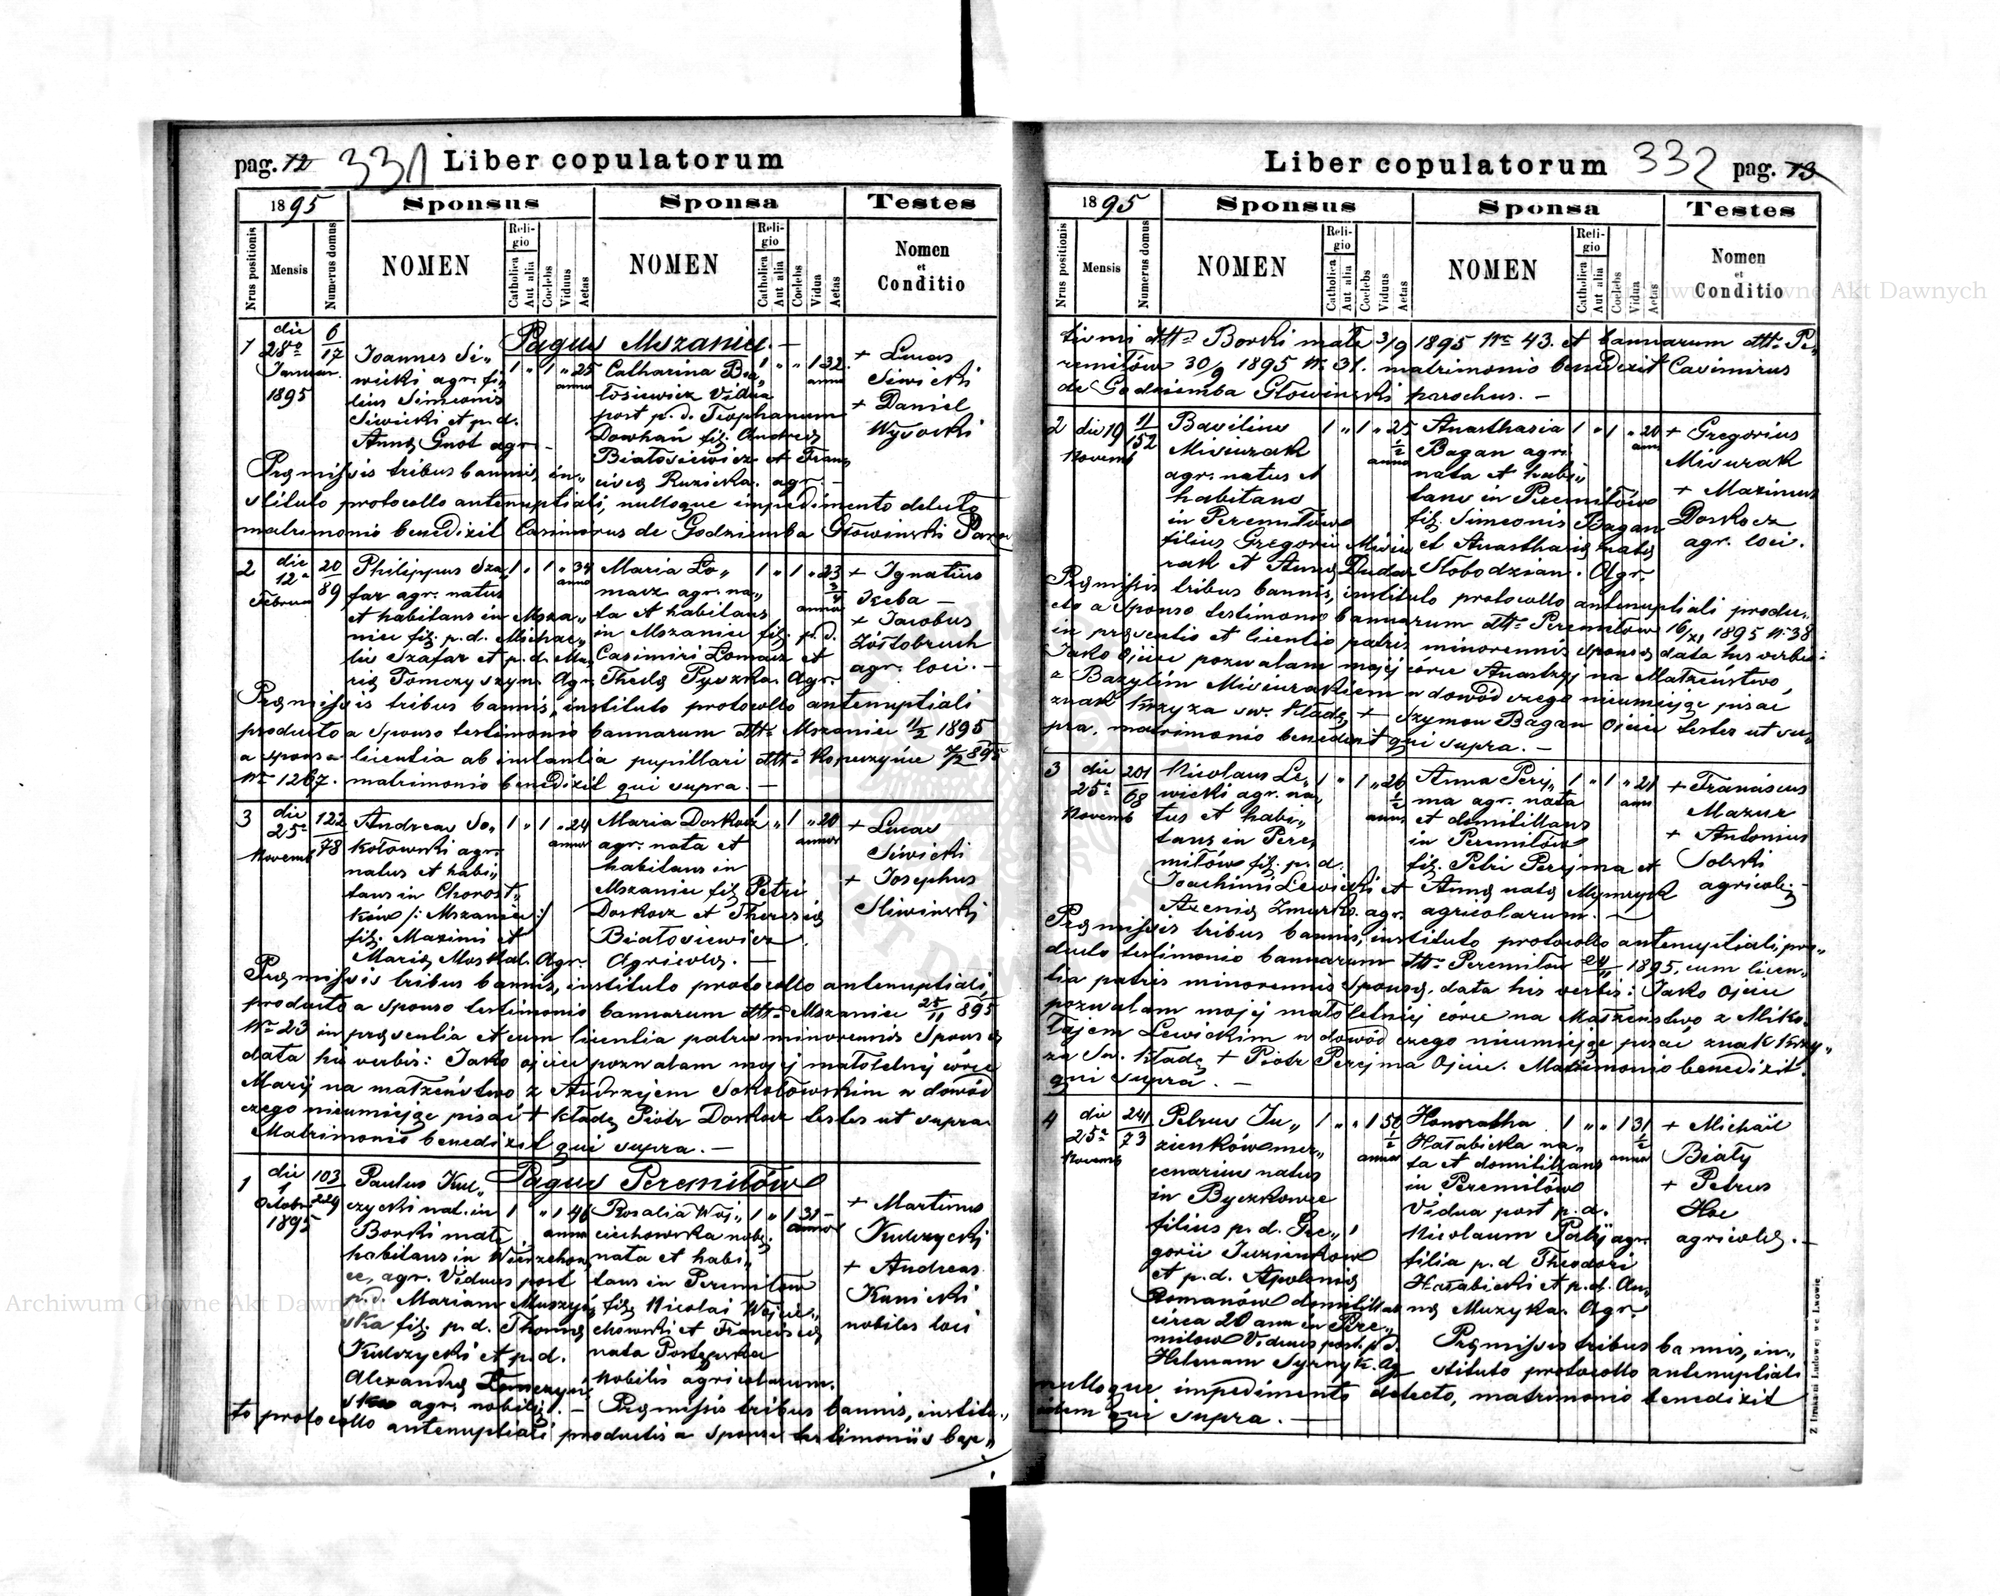 pag. 12 331 Liber copulatorum
1895 Sponsus Sponsa Testes
Nrus positionis Mensis Numerus domus NOMEN Religio Catholica Aut alia Coelebs Viduus Aetas NOMEN Religio Catholica Aut alia Coelebs Vidua Aetas Nomen et Conditio
Pagus Mszaniec. —
1
die
28va
Januar.
1895
6/17
Joannes Si„
wicki agr. fi„
lius Simeonis
Siwicki et p. d.
Anna Gnot agr. —
1 „ 1 „ 25
anno
Catharina Bia„
łosiewicz Vidua
post p. d. Teophanum
Dowhań fil. Andreæ
Białosiewicz et Fran„
ciscæ Ruzicka. agr. —
1 „ „ 1 32
anno
+ Lucas
Siwicki
+ Daniel
Wysocki
Præmissis tribus bannis, in„
stituto protocollo antenuptiali, nulloque impedimento detecto
matrimonio benedixit Casimirus de Godziemba Głowinski Paro
2
die
12a
Februar
20/89
Philippus Sza„
far agr. natus
et habitans in Msza„
niec fil. p. d. Michae„
lis Szafar et p. d. Ma„
riæ Tomczyszyn. Agr.
1 „ 1 „ 34
anno
Maria Lo„
marz agr. na„
ta et habitans
in Mszaniec fil. p. d.
Casimiri Lomarz et
Theclæ Pyszka. Agr.
1 „ 1 „ 23 3/4
annor
+ Ignatius
Keba —
+ Jacobus
Żółtobruch
agr. loci. —
Præmissis tribus bannis, instituto protocollo antenuptiali
producto a sponso testimonio bannorum dtto Mszaniec 11/2 1895
a sponsa licentia ab instantia pupillari dtto Kopeczyńce 7/2 895
Nro 1267. matrimonio benedixit qui supra. —
3
die
25a
Novemb
122/78
Andreas So„
kołowski agr.
natus et habi„
tans in Chorost„
ków /: Mszaniec :/
fil. Maximi et
Mariæ Moskal. Agr.
1 „ 1 „ 24
annor
Maria Doskocz
agr. nata et
habitans in
Mszaniec fil. Petri
Doskocz et Theresiæ
Białosiewicz
Agricolæ. —
1 „ 1 „ 20
annor
+ Lucas
Siwicki
+ Josephus
Sliwinski
Præmissis tribus bannis, instituto protocollo antenuptiali,
producto a sponso testimonio bannorum dtto Mszaniec 25/11 895
Nro 23 in præsentia et cum licentia patris minorennis Sponsæ
data his verbis: Jako ojciec pozwalam mojej małoletniej córce
Maryi na małzeństwo z Andrzejem Sokołowskim w dowód
czego nieumiejąc pisać + kładę Piotr Doskocz testes ut supra
Matrimonio benedixit qui supra. —
Pagus Peremilów
1
die
1
Octobris
1895
103/224
Paulus Kul„
czycki nat. in
Borki małe
habitans in Wierzchow„
ce, agr. Viduus post
p. d. Mariam Muszyń„
ska fil. p. d. Thomæ
Kulczycki et p. d.
Alexandræ Tomczyń„
ska agr. nobilis. —
1 „ „ 1 46
anno
Rosalia Woj„
ciechowska nobi.
nata et habi„
tans in Peremilów
fil. Nicolai Wojcie„
chowski et Franciscæ
nata Postępska
nobilis agricolarum.
1 „ 1 31 —
annor
+ Martinus
Kulczycki
+ Andreas
Kunicki
nobiles loci
Præmissis tribus bannis, institu„
to protocollo antenuptiali productis a sponso testimoniis bap„
Liber copulatorum 332 pag. 13
1895 Sponsus Sponsa Testes
Nrus positionis Mensis Numerus domus NOMEN Religio Catholica Aut alia Coelebs Viduus Aetas NOMEN Religio Catholica Aut alia Coelebs Vidua Aetas Nomen et Conditio
tismi dtto Borki małe 3/9 1895 Nro 43. et bannorum dtto Pe„
remilów 30/9 1895 N. 31. matrimonio benedixit Casimirus
de Godziemba Głowinski parochus. —
2
die 19
Novemb
11/152
Basilius
Misiurak
agr. natus et
habitans
in Peremilów
filius Gregorii Misiu
rak et Annæ Dudar
1 „ 1 „ 25 1/2
anno
Anasthasia
Bagan agr.
nata et habi„
tans in Peremilów
fil. Simeonis Bagan
et Anasthasiæ nata
Słobodzian. Agr.
1 „ 1 „ 20
ann
+ Gregorius
Misiurak
+ Maximus
Doskocz
agr. loci.
Præmissis tribus bannis, instituto protocollo antenuptiali produ„
cto a sponso testimonio bannorum dtto Peremilów 16/XI 1895 N. 38
in præsentia et licentia patris minorennis sponsæ data his verbis:
Jako ojciec pozwalam mojej córce Anastazyi na Małzeństwo
z Bazylim Misiurakiem w dowód czego nieumiejąc pisać
znak krzyza św. kładę + Szymon Bagan Ojciec testes ut su„
pra. matrimonio benedixit qui supra. —
3
die
25a
Novemb
201/68
Nicolaus Le„
wicki agr. na„
tus et habi„
tans in Pere
miłów fil. p. d.
Joachimi Lewicki et
Axeniæ Zmurko. agr.
1 „ 1 „ 26 1/2
annor
Anna Perij„
ma agr. nata
et domicilians
in Peremilów
fil. Petri Perijma et
Annæ nata Mymryk
agricolarum. —
1 „ 1 „ 21
ann
+ Franciscus
Mazur
+ Antonius
Solski
agricolæ —
Præmissis tribus bannis, instituto protocollo antenuptiali, pro„
ducto testimonio bannorum dtto Peremilów 24/11 1895, cum licen„
tia patris minorennis Sponsæ, data his verbis: Jako ojciec
pozwalam mojej małoletniej córce na Małzeństwo z Miko„
łajem Lewickim w dowód czego nieumiejąc pisać znak krzy„
za św. kładę + Piotr Perejma Ojciec. Matrimonio benedixit.
qui supra. —
4
die
25a
Novemb
241/73
Petrus Ju„
zienków mer„
cenarius natus
in Byczkowce
filius p. d. Gre„
gorii Juzienkow
et p. d. Apoloniæ
Romanów domicilians
circa 20 ann in Pere„
milow Viduus post p. d.
Helenam Syrnyk. Ag
1 „ „ 1 50 1/2
annor
Honoratha
Hałabicka na„
ta et domicilians
in Peremilów
Vidua post p. d.
Nicolaum Palij agr.
filia p. d Theodori
Hałabicki et p. d. An„
næ Muzyka. Agr.
1 „ „ 1 31 1/2
annor
+ Michaël
Biały
+ Petrus
Hoc
agricolæ. —
Præmissis tribus bannis, in„
stituto protocollo antenuptiali
nulloque impedimento detecto, matrimonio benedixit
idem qui supra. —
Z Drukarni Ludowej we Lwowie
Archiwum Główne Akt Dawnych
Archiwum Główne Akt Dawnych